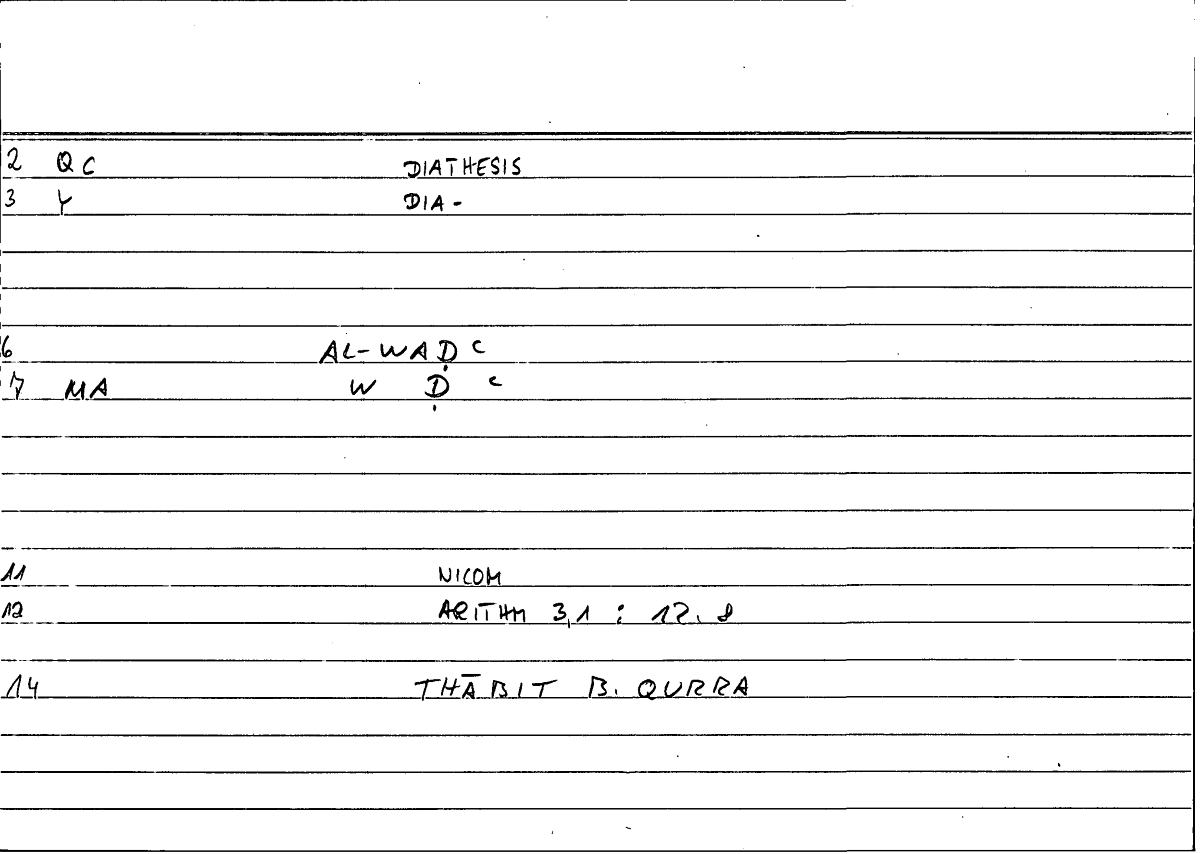 2 QC DIATHESIS
3 Y DIA-
6 AL-WAḌ ͨ
7 MA W Ḍ ͨ
11 NICOM
12 ARITHM 3,1 : 12. 8
14 THĀBIT B. QURRA